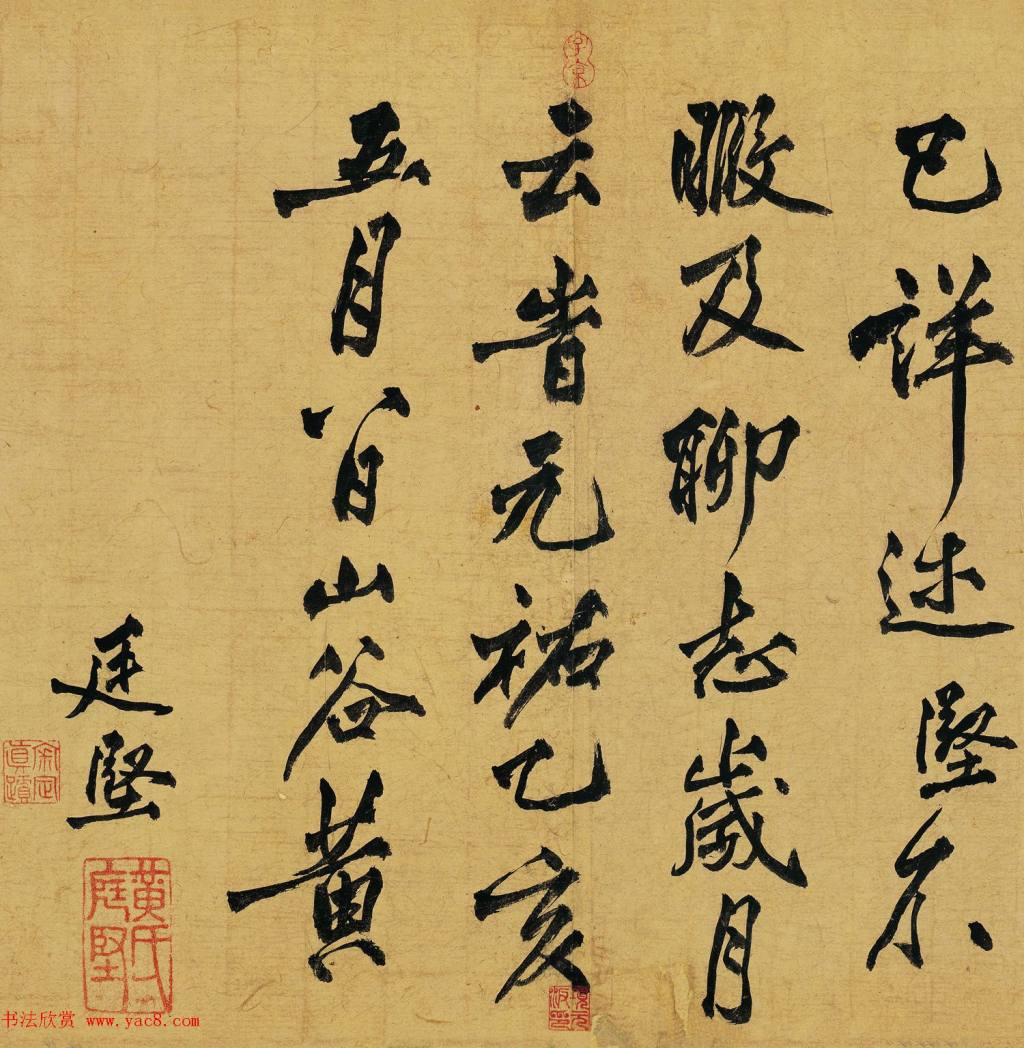 已詳述堅不
暇及聊志歲月
云旹元祐己亥
五月八日山谷黄
廷堅
子京
黃氏庭堅
书法欣赏 www.yac8.com